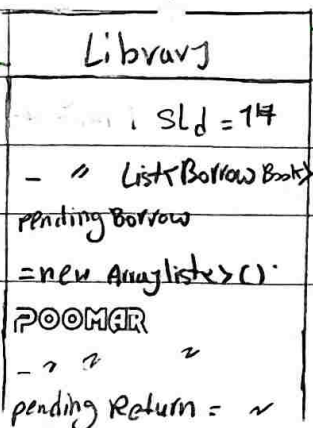 Library
SLd = 14
- " List<Borrow Book>
pending Borrow
= new Arraylist<>().
POOMAR
- " " "
pending Return = ~